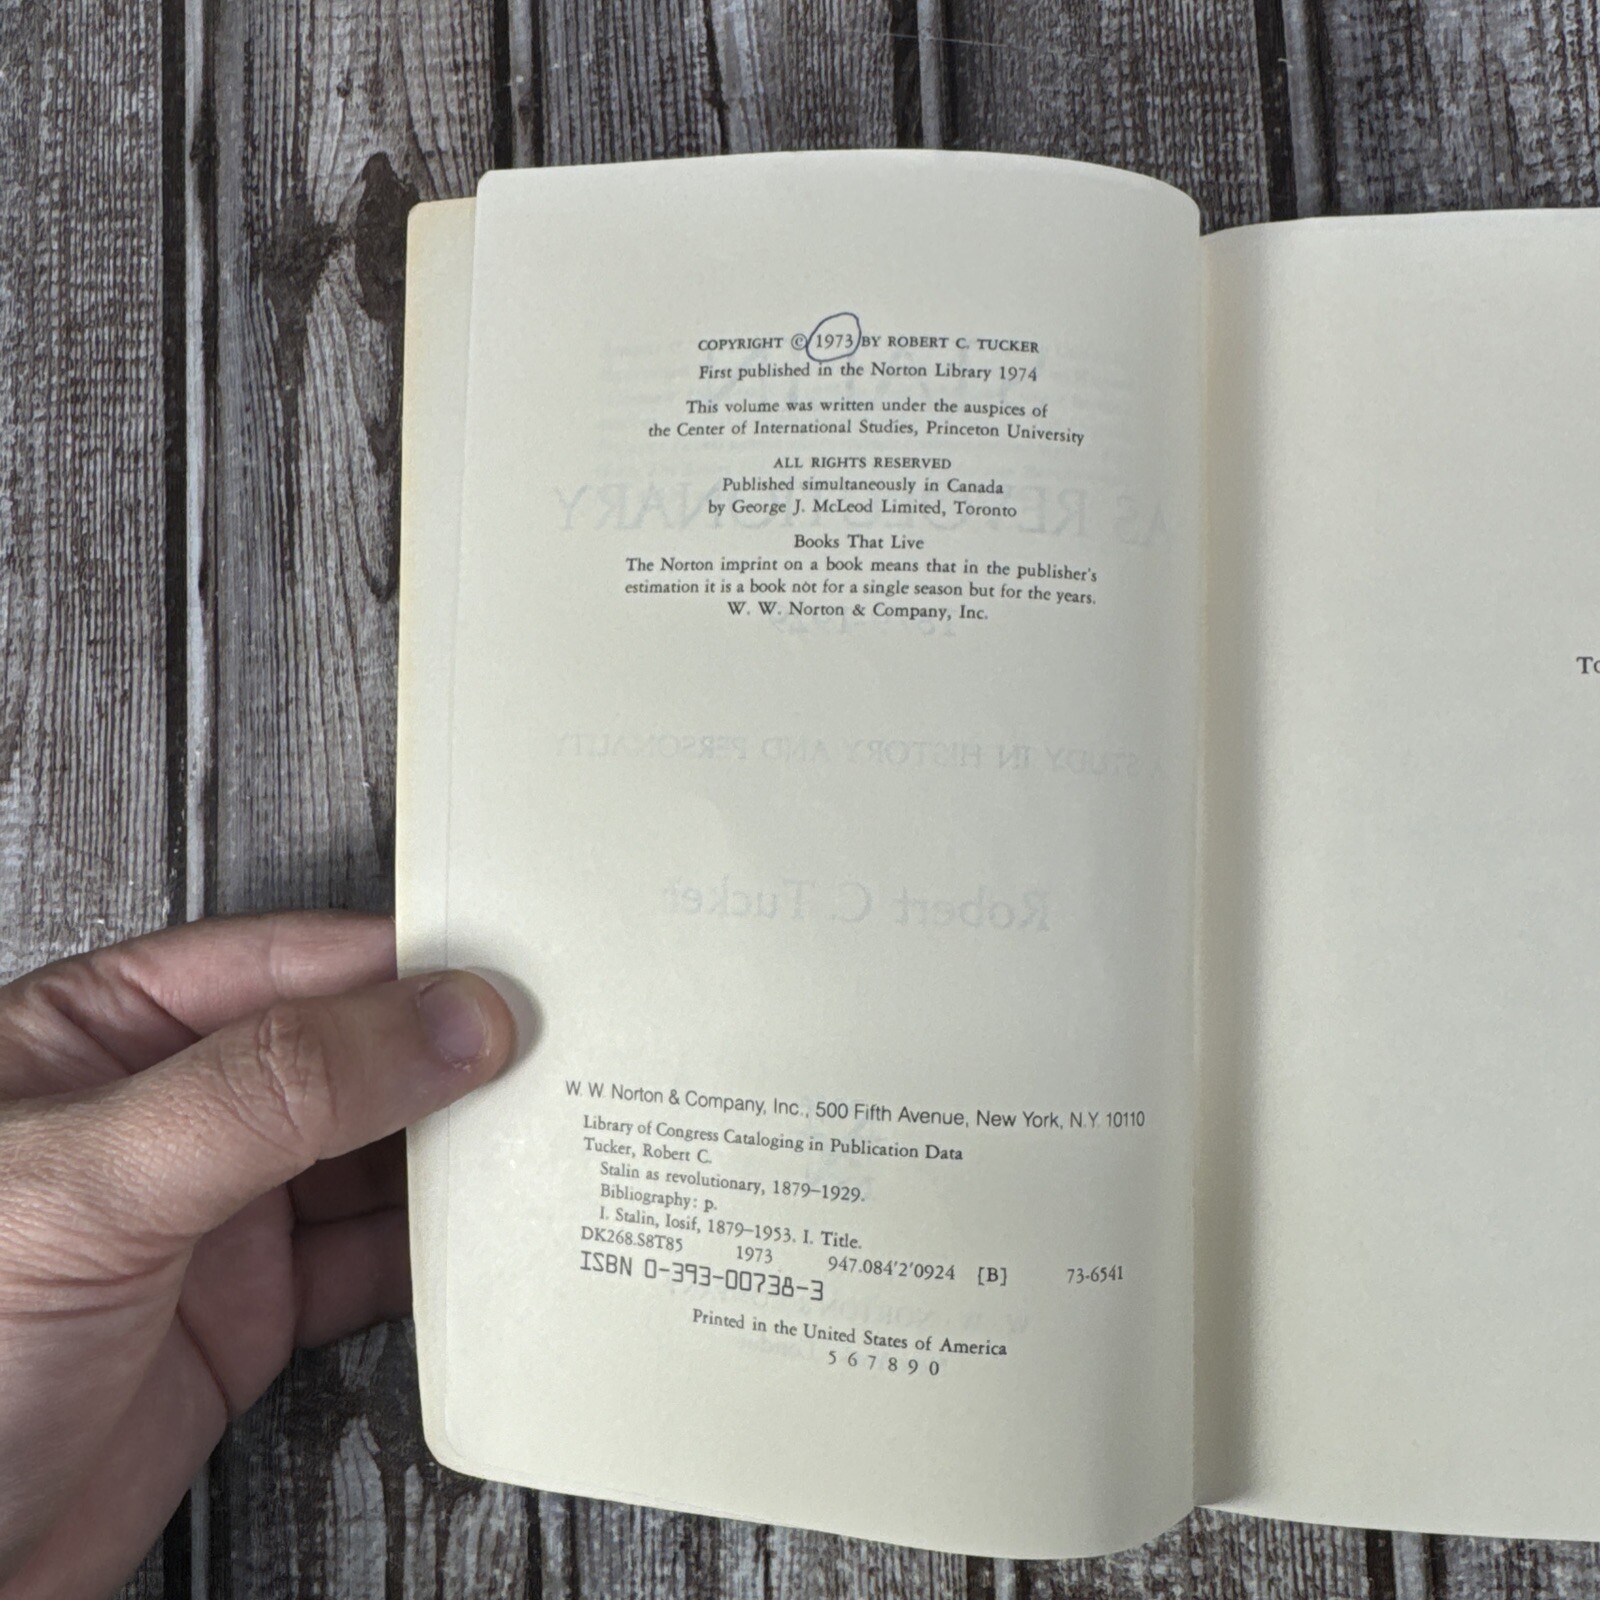 COPYRIGHT © 1973 BY ROBERT C. TUCKER
First published in the Norton Library 1974
This volume was written under the auspices of
the Center of International Studies, Princeton University
ALL RIGHTS RESERVED
Published simultaneously in Canada
by George J. McLeod Limited, Toronto
Books That Live
The Norton imprint on a book means that in the publisher's
estimation it is a book not for a single season but for the years.
W. W. Norton & Company, Inc.
AS REVOLUTIONARY
A STUDY IN HISTORY AND PERSONALITY
Robert C. Tucker
W. W. Norton & Company, Inc., 500 Fifth Avenue, New York, N.Y. 10110
Library of Congress Cataloging in Publication Data
Tucker, Robert C.
Stalin as revolutionary, 1879–1929.
Bibliography: p.
1. Stalin, Iosif, 1879–1953. I. Title.
DK268.S8T85 1973 947.084'2'0924 [B] 73-6541
ISBN 0-393-00738-3
Printed in the United States of America
5 6 7 8 9 0
To